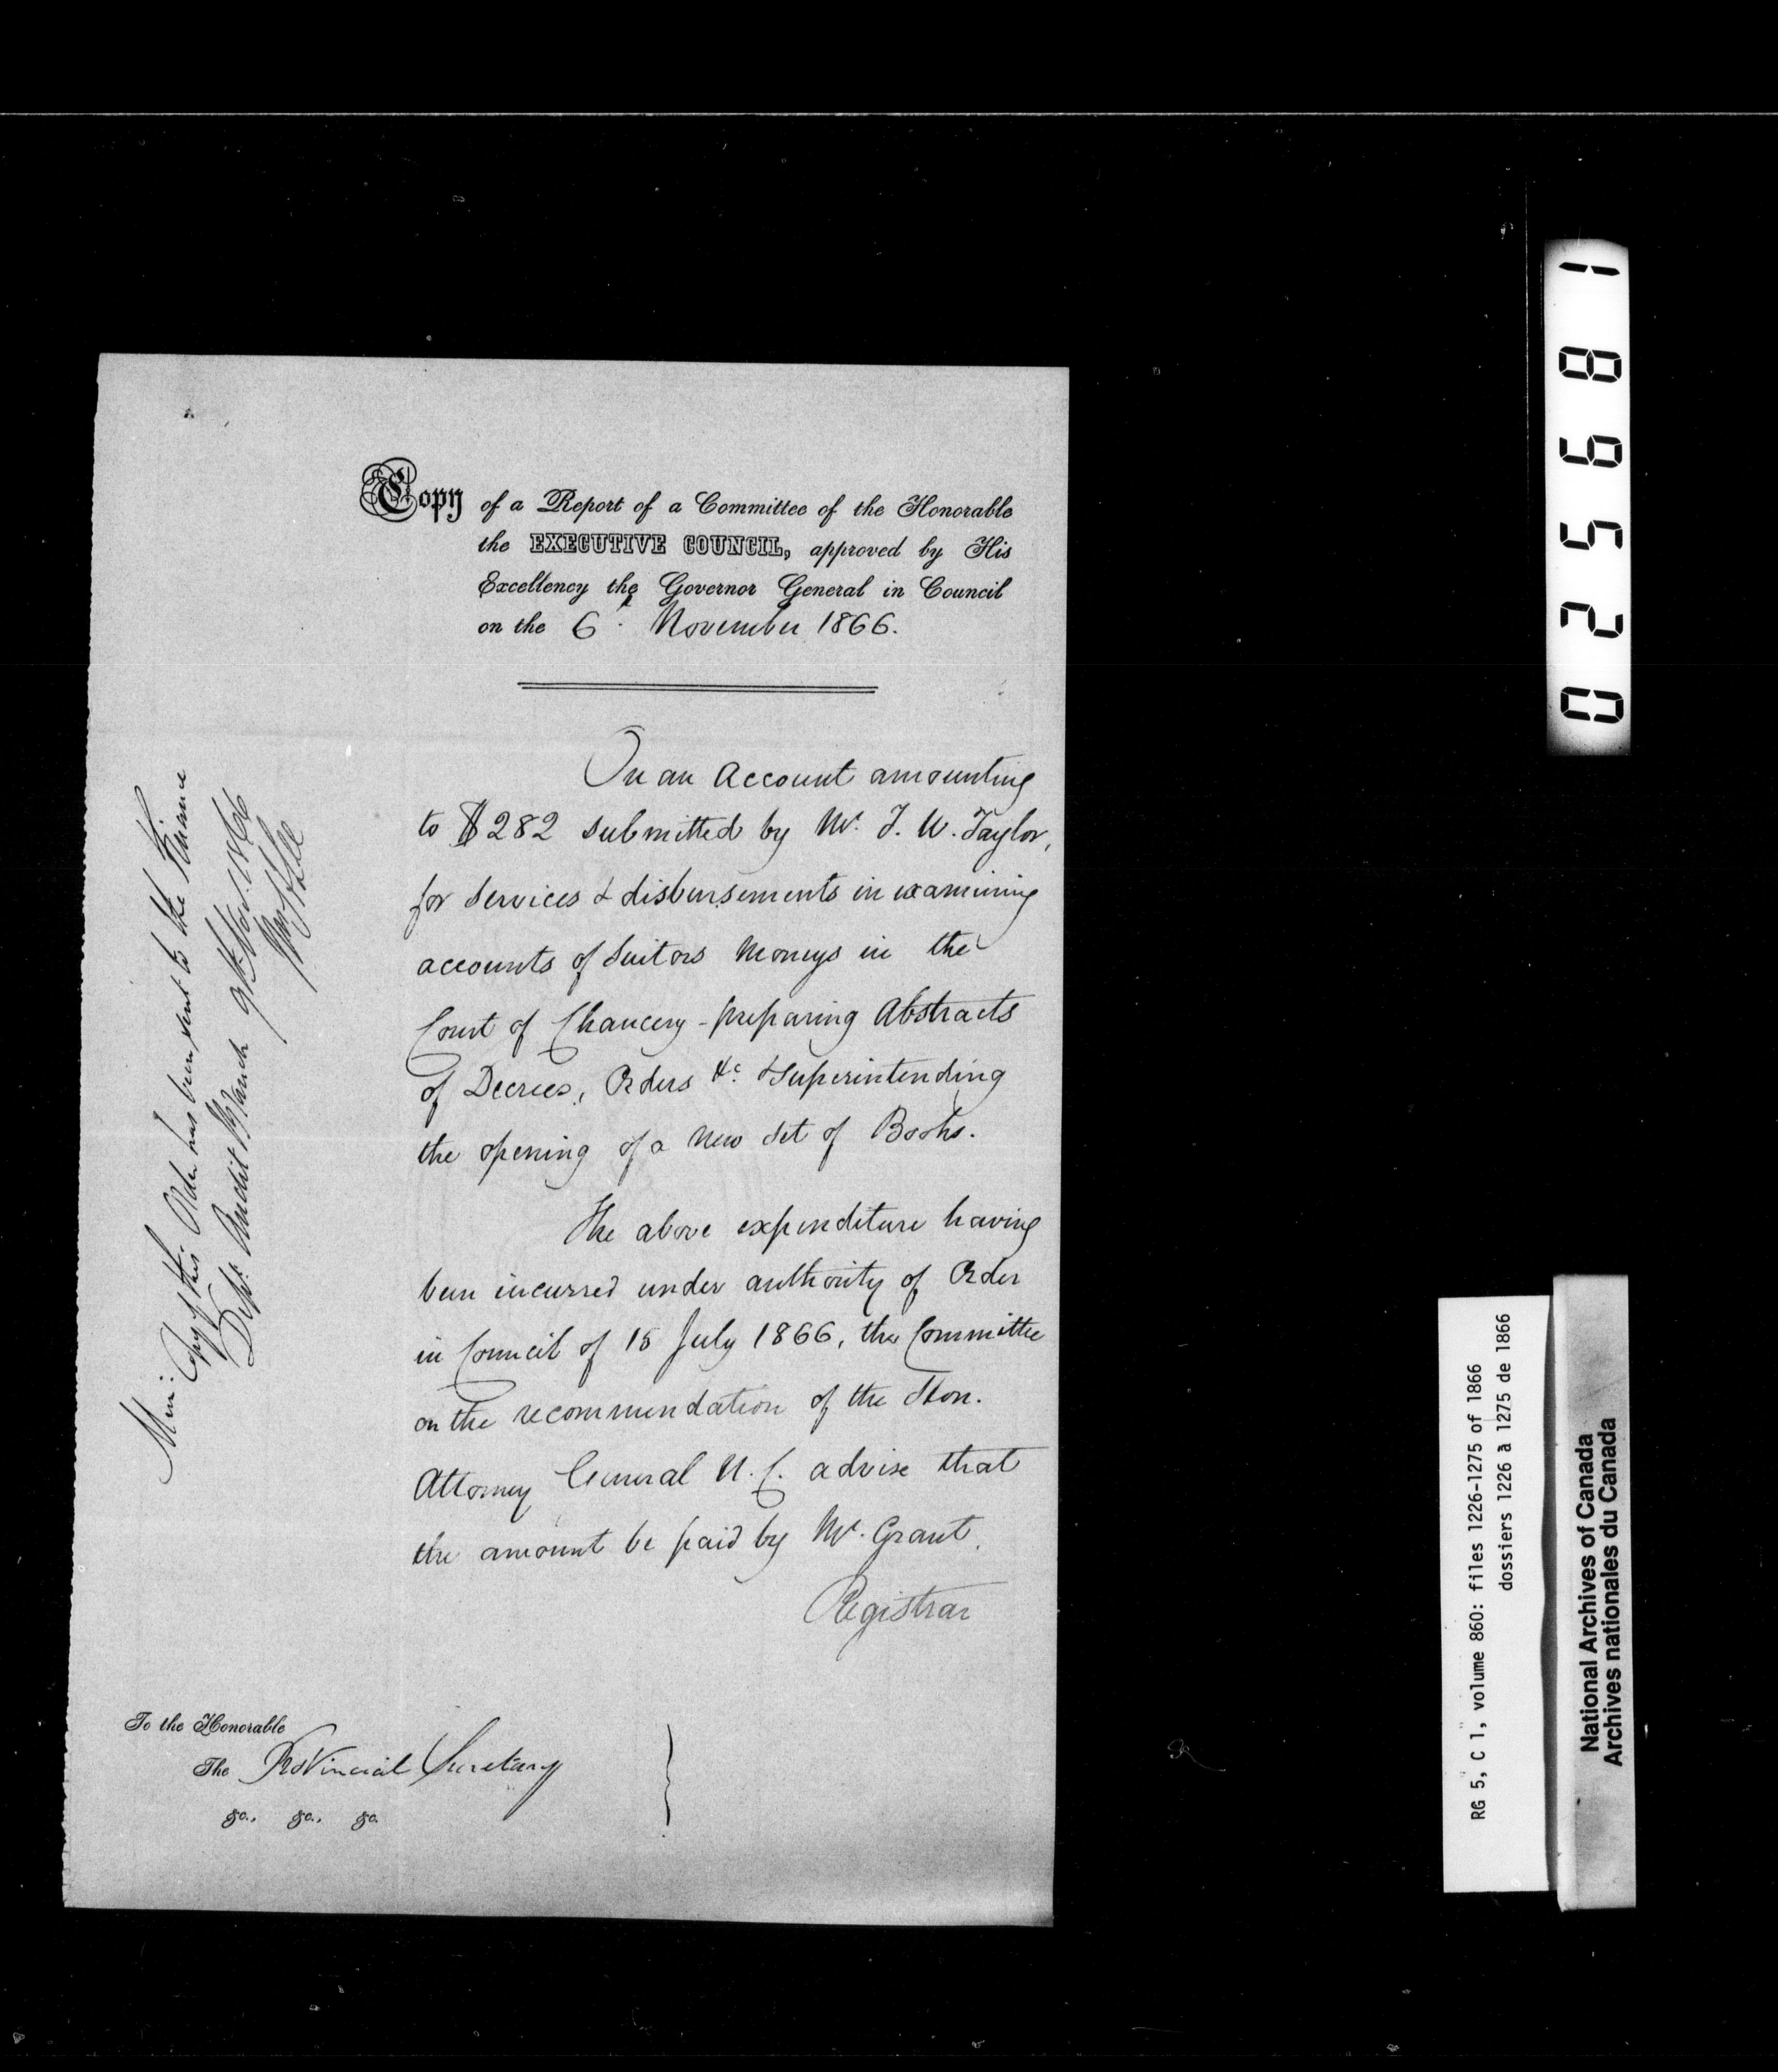 Copy of a Report of a Committee of the Honorable
the EXECUTIVE COUNCIL, approved by His
Excellency the Governor General in Council
on the 6th November 1866.
On an Account amounting
to $282 submitted by Mr. T. W. Taylor,
for Services & disbursements in examining
accounts of Suitors Moneys in the
Court of Chancery - preparing Abstracts
of Decrees, Orders &c. & Superintending
the opening of a new Set of Books.
The above expenditure having
been incurred under authority of Order
in Council of 15 July 1866, the Committee
on the recommendation of the Hon.
Attorney General U.C. advise that
the amount be paid by Mr. Grant,
Registrar
To the Honorable
The Provincial Secretary
&c., &c., &c.
Mem: Copy of this Order has been sent to the Finance
Dept. Audit Branch 9th Nov. 1866
025681
RG 5, C 1, volume 860: files 1226-1275 of 1866
dossiers 1226 à 1275 de 1866
National Archives of Canada
Archives nationales du Canada